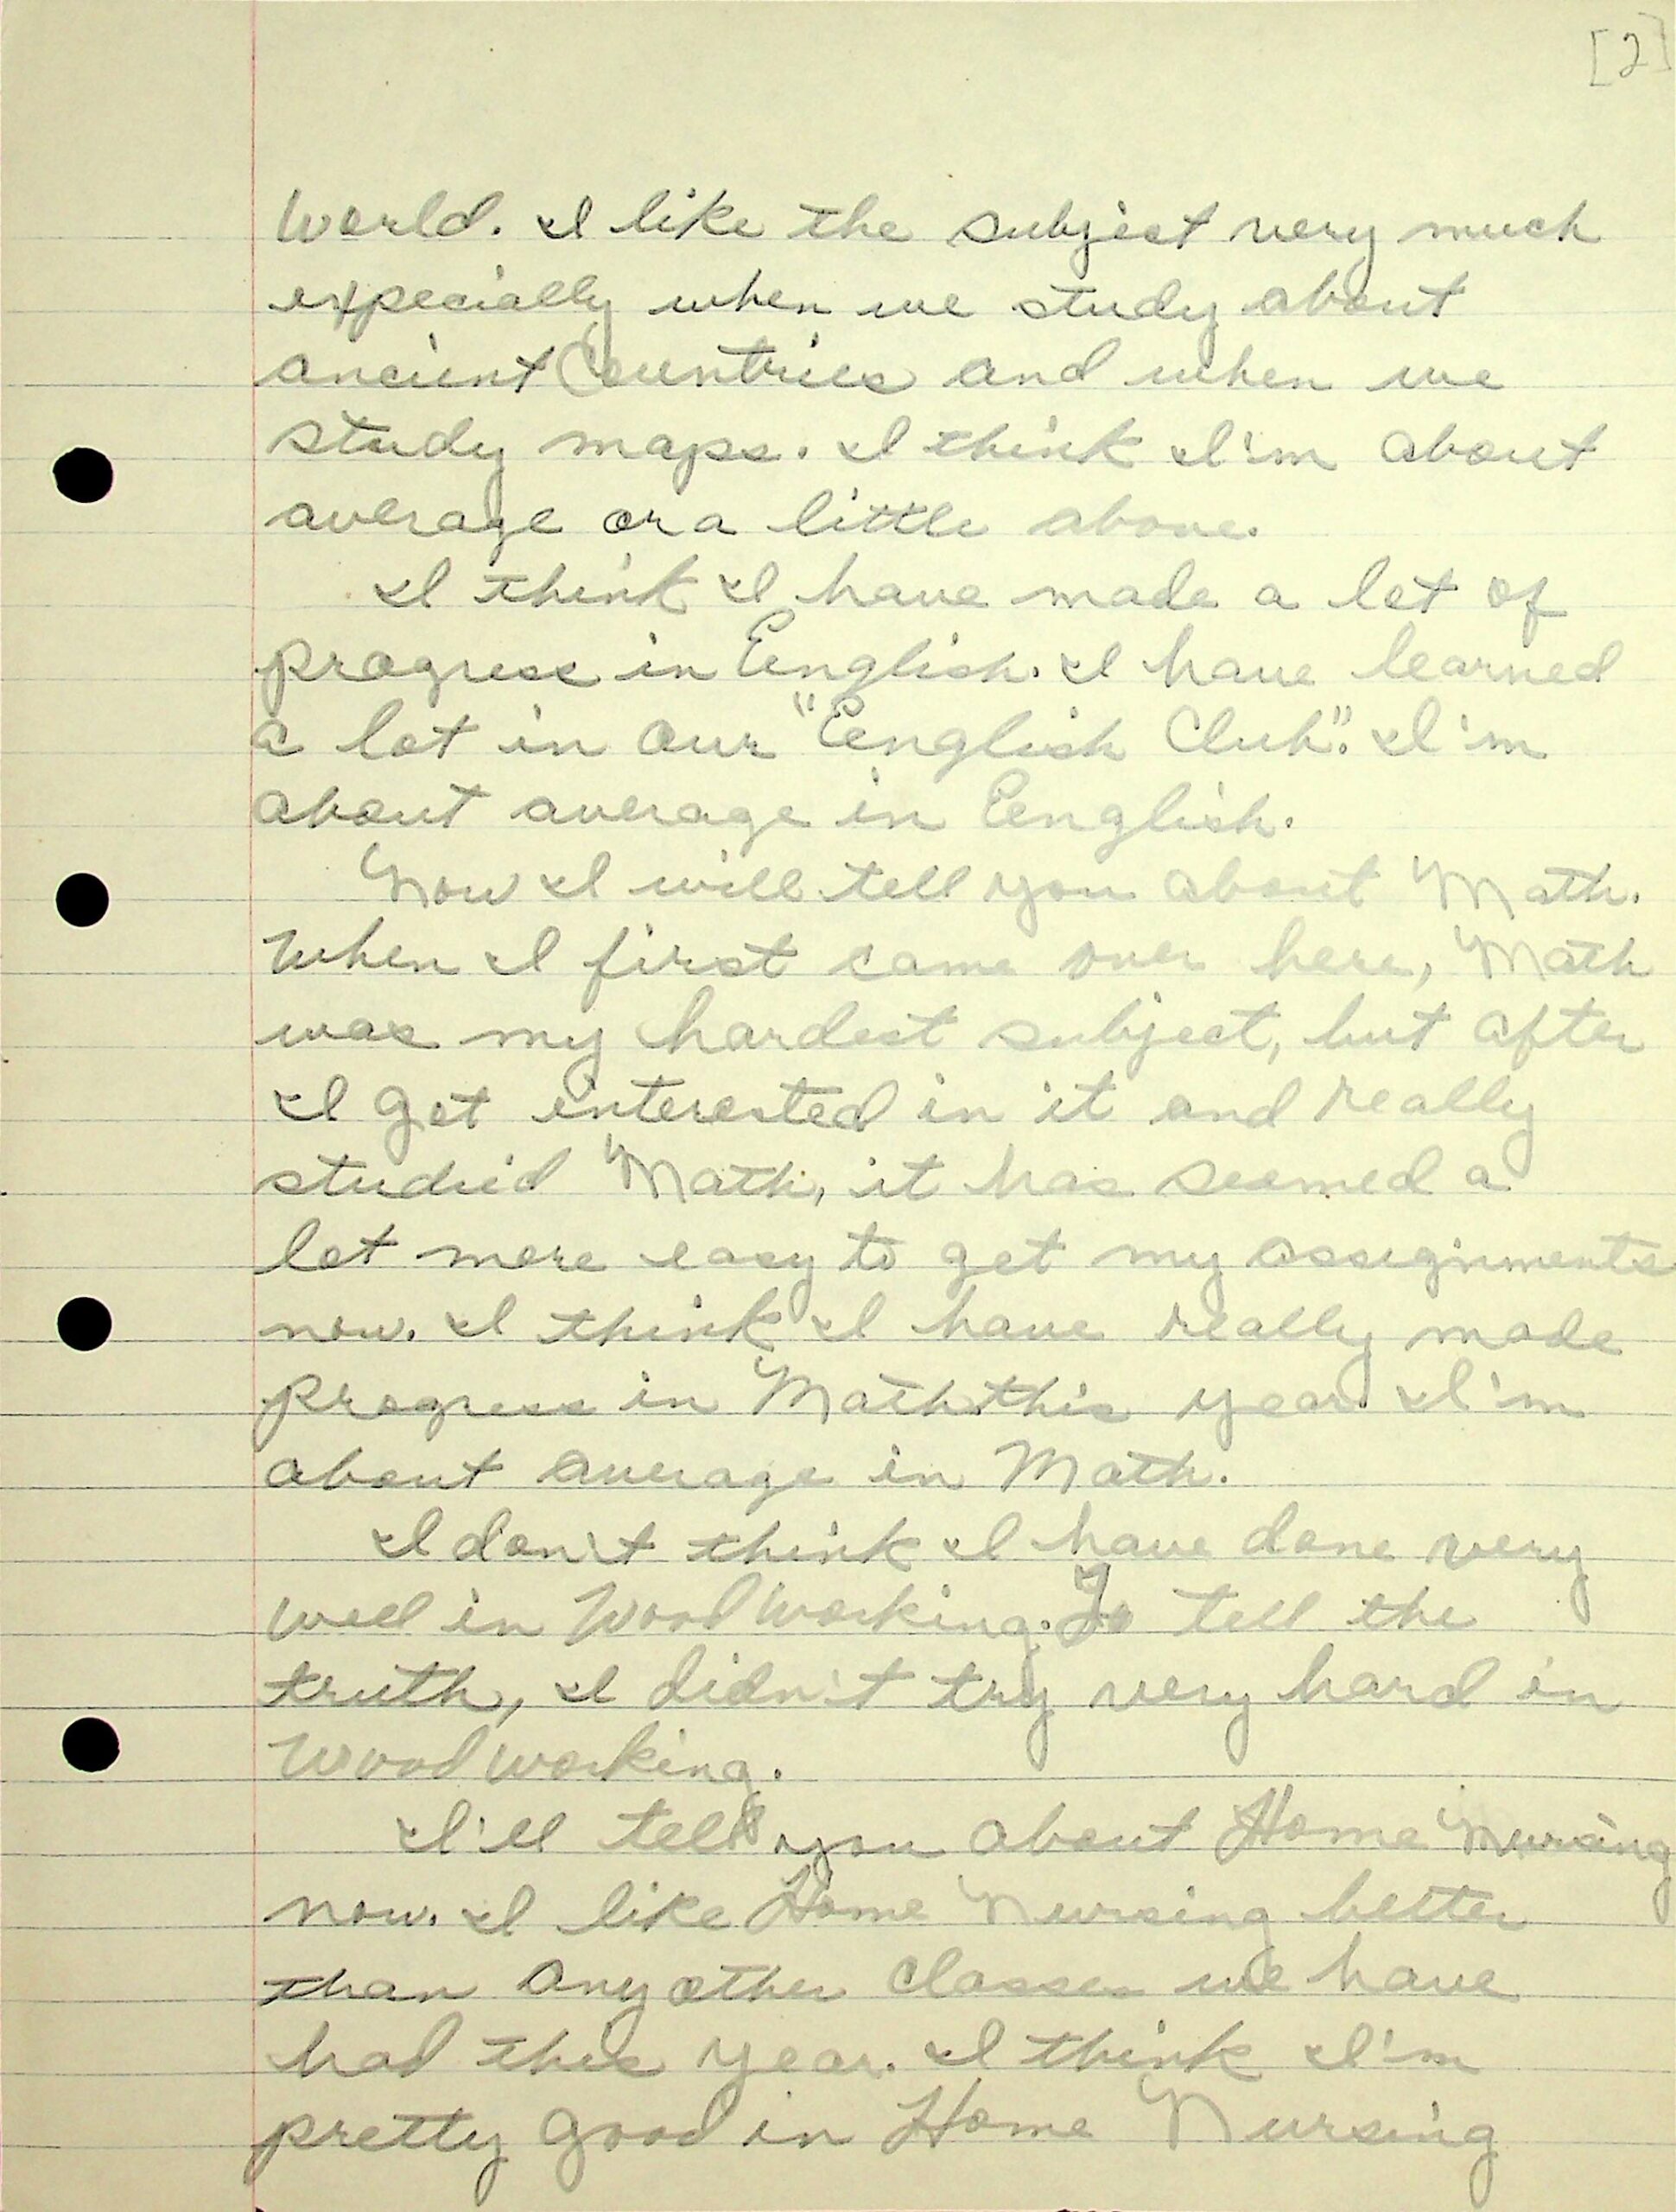 [2]
World. I like the subject very much
expecially when we study about
ancient Countries and when we
study maps. I think I'm about
average or a little above.
I think I have made a lot of
progress in English. I have learned
a lot in our "English Club". I'm
about average in English.
Now I will tell you about Math.
When I first came over here, Math
was my hardest subject, but after
I got interested in it and really
studied Math, it has seemed a
lot more easy to get my assignments
now. I think I have really made
progress in Math this year. I'm
about average in Math.
I don't think I have done very
well in Wood Working. To tell the
truth, I didn't try very hard in
Wood working.
I'll tell you about Home Nursing
now. I like Home Nursing better
than any other classes we have
had this year. I think I'm
pretty good in Home Nursing